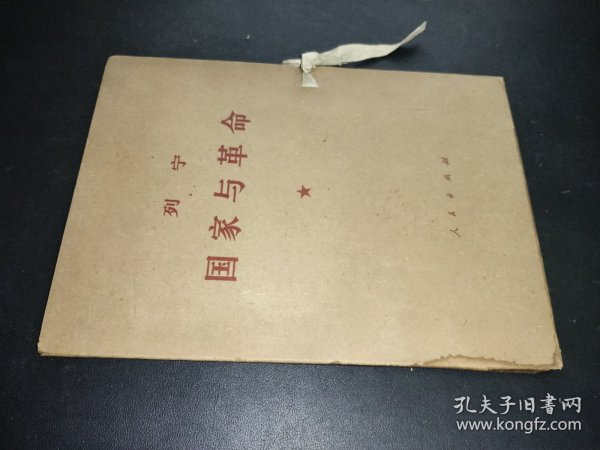 列宁
国家与革命
人民出版社
孔夫子旧書网
www.kongfz.com